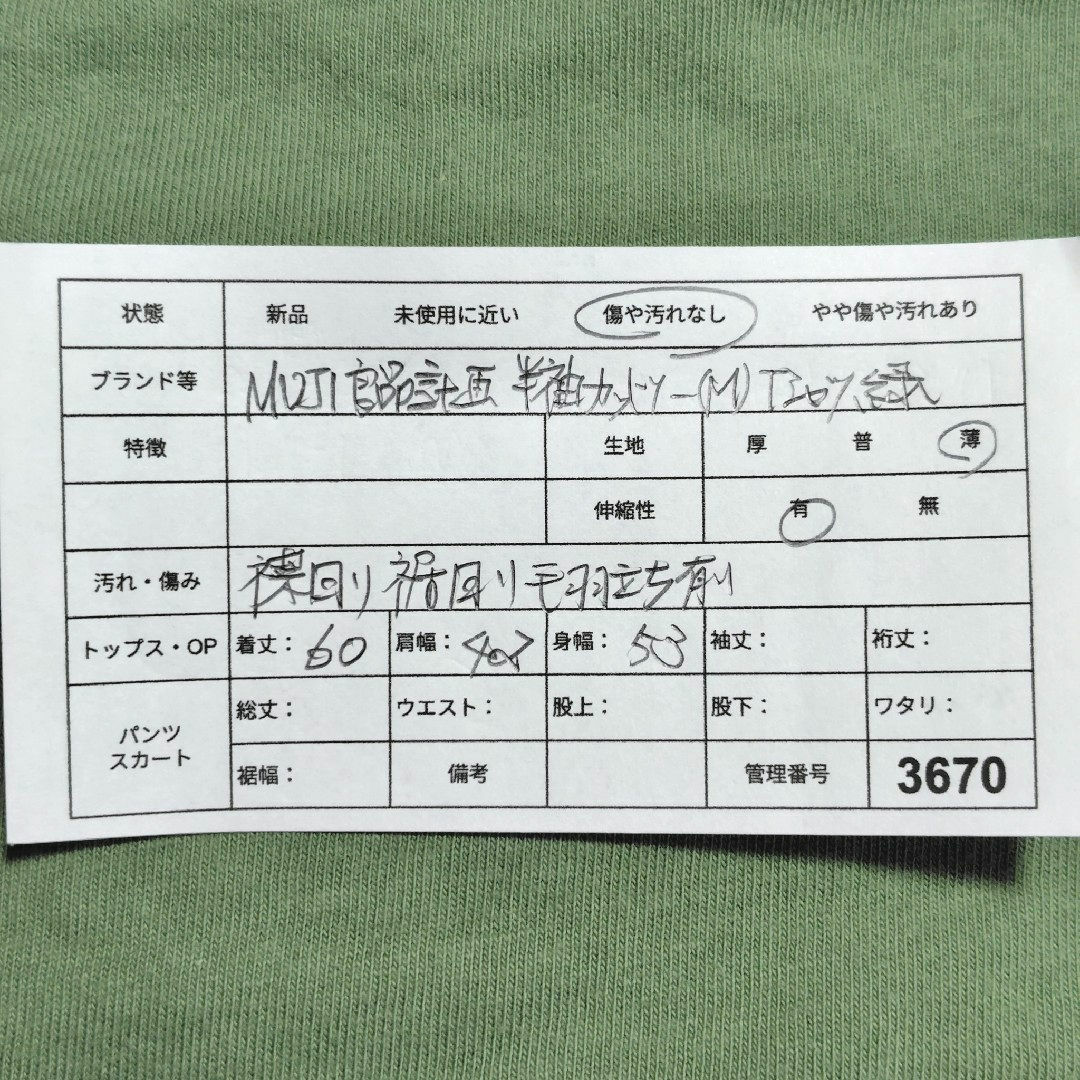 状態 新品 未使用に近い 傷や汚れなし やや傷や汚れあり
ブランド等 MUJI 良品計画 半袖カットソー(M) Tシャツ 緑
特徴 生地 厚 普 薄
伸縮性 有 無
汚れ・傷み 襟回り 裾回り 毛羽立ち有り
トップス・OP 着丈: 60 肩幅: 42 身幅: 53 袖丈: 裄丈:
パンツ スカート 総丈: ウエスト: 股上: 股下: ワタリ:
裾幅: 備考 管理番号 3670